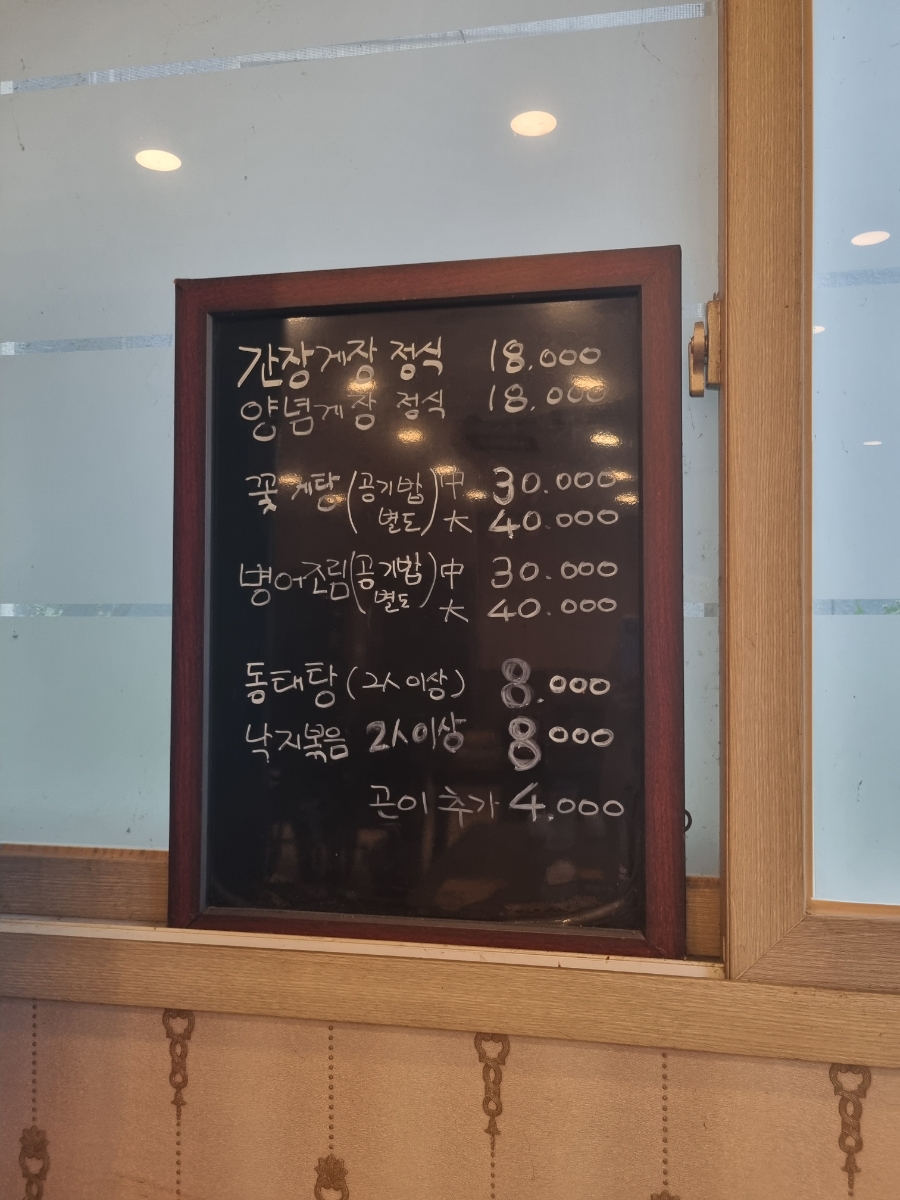 간장게장 정식 18.000
양념게장 정식 18.000
꽃게탕(공기밥 별도) 中 30.000
大 40.000
병어조림(공기밥 별도) 中 30.000
大 40.000
동태탕 (2人 이상) 8.000
낙지볶음 2人이상 8000
곤이 추가 4.000